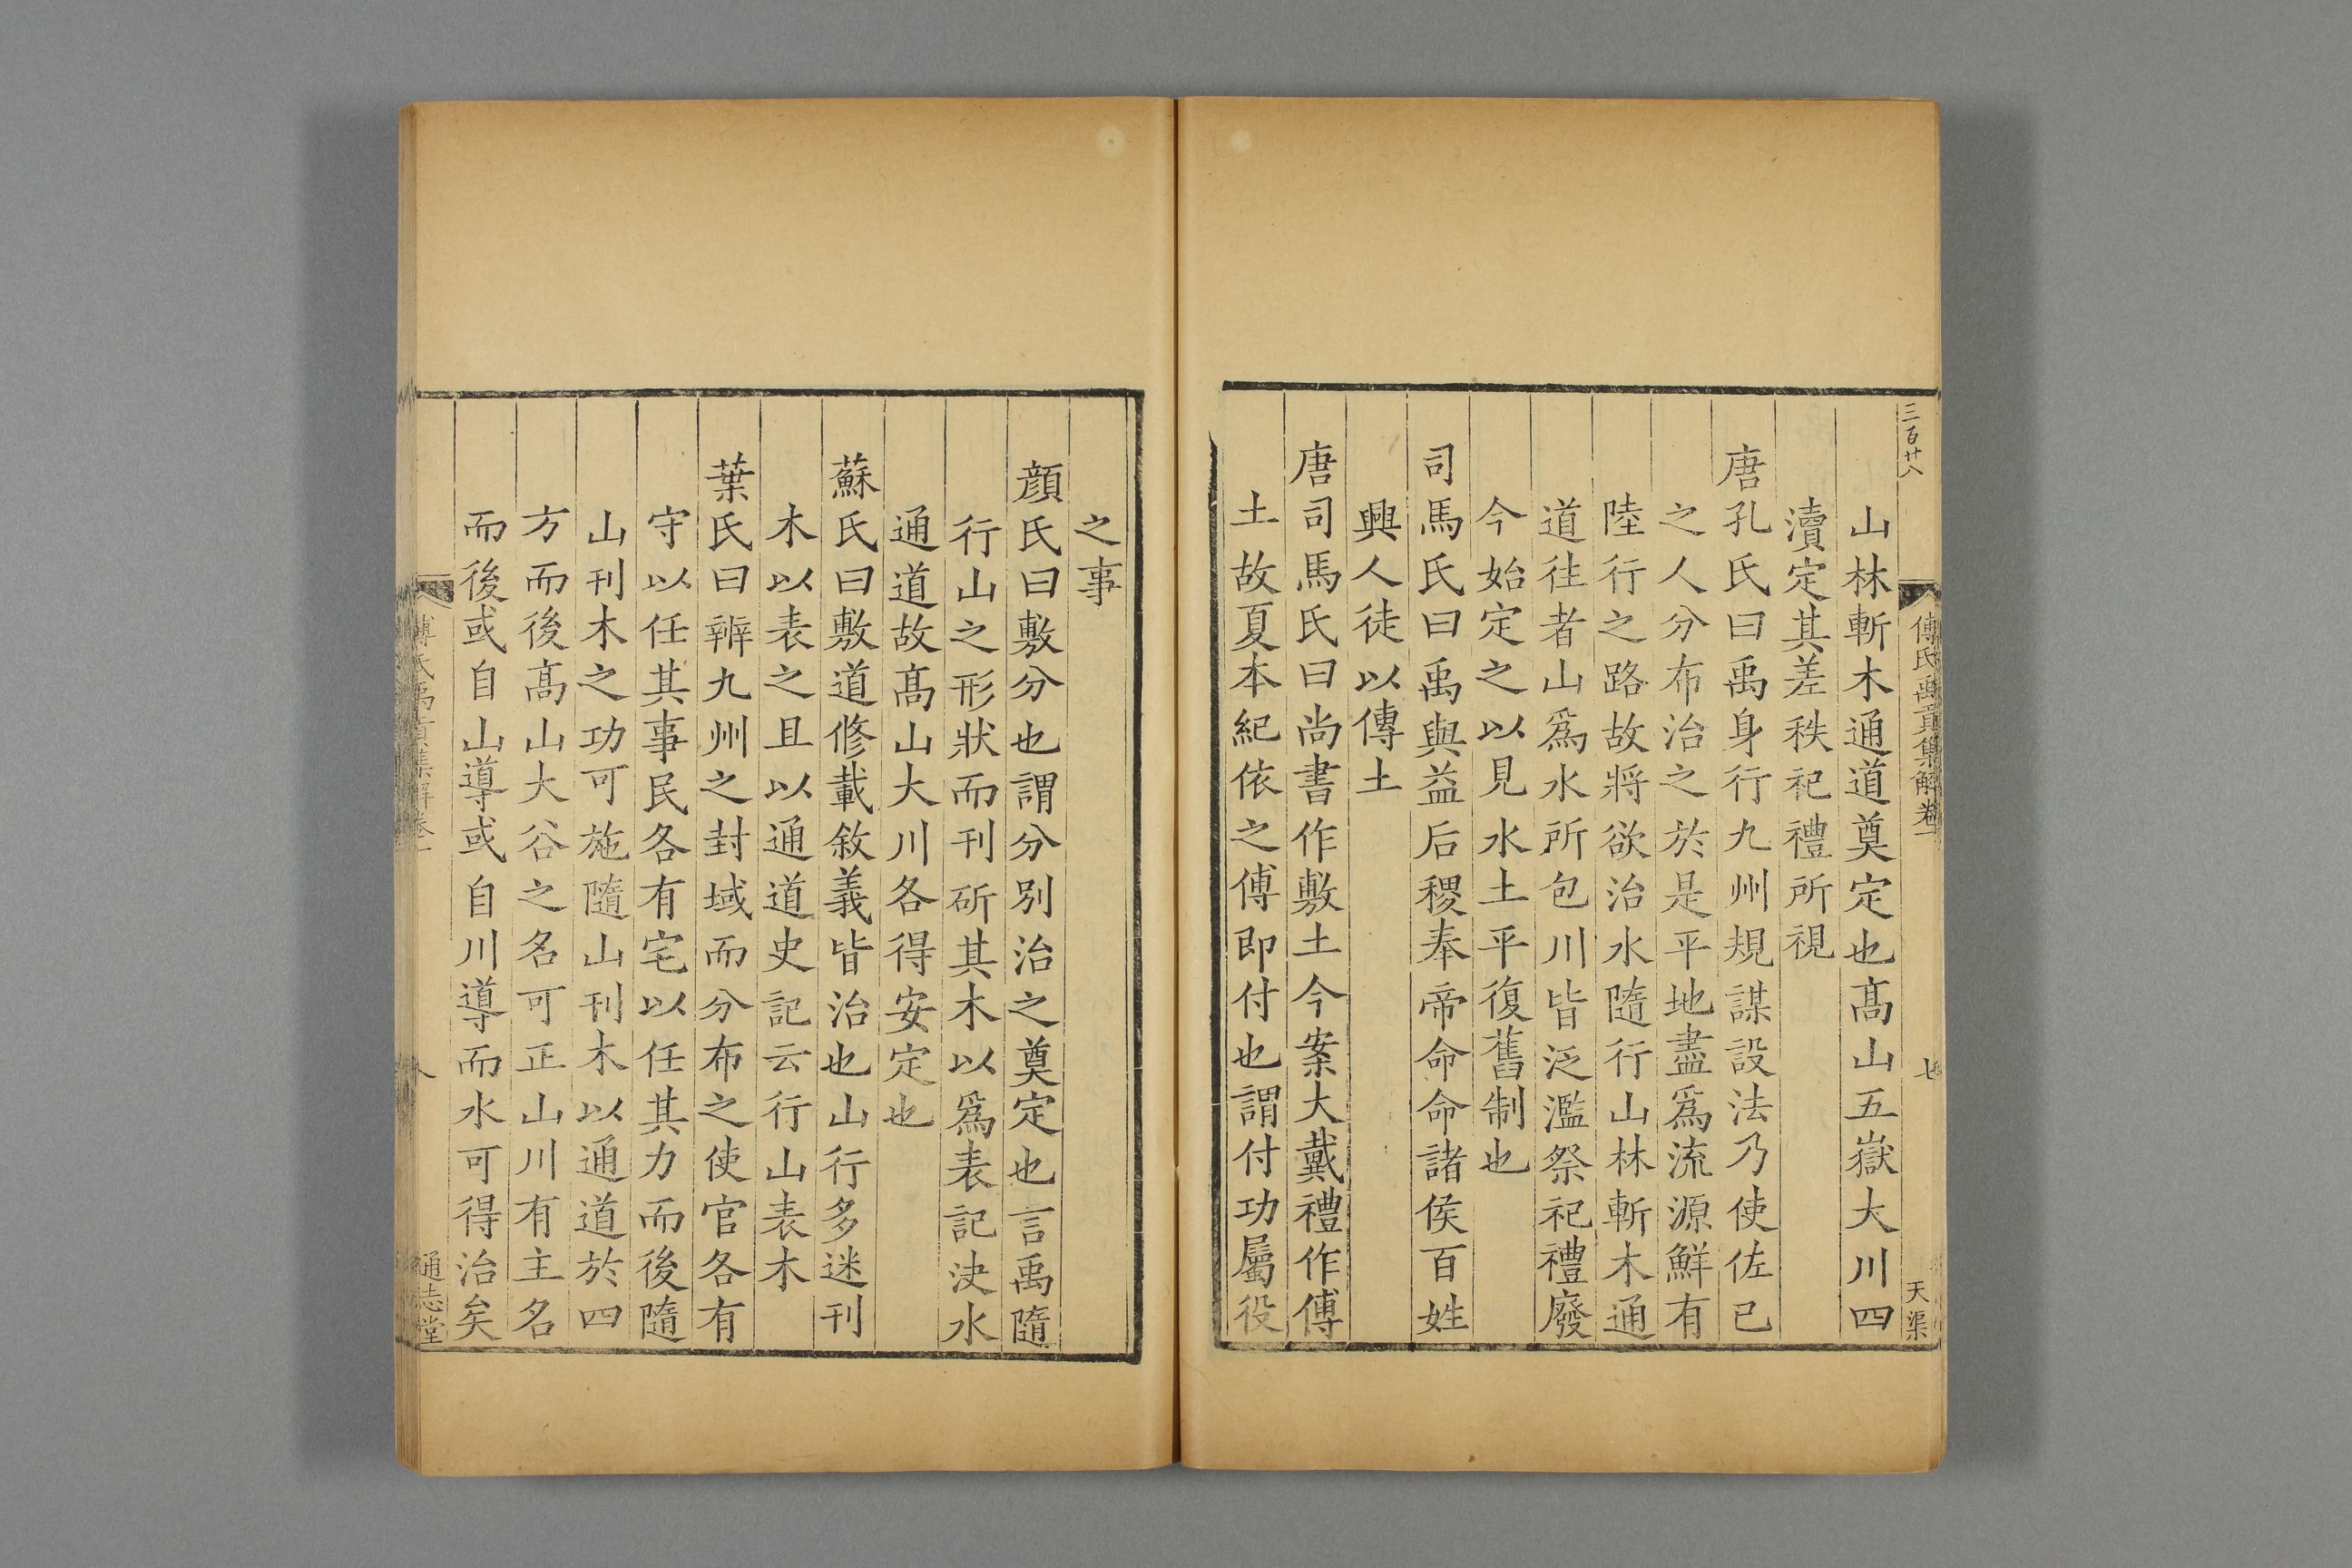 三百廿八
傅氏禹貢集解卷一
七
天渠
山林斬木通道奠定也髙山五嶽大川四
瀆定其差秩祀禮所視
唐孔氏曰禹身行九州規謀設法乃使佐已
之人分布治之於是平地盡爲流源鮮有
陸行之路故將欲治水隨行山林斬木通
道往者山爲水所包川皆泛濫祭祀禮廢
今始定之以見水土平復舊制也
司馬氏曰禹與益后稷奉帝命命諸侯百姓
興人徒以傅土
唐司馬氏曰尚書作敷土今案大戴禮作傅
土故夏本紀依之傅即付也謂付功屬役
之事
顔氏曰敷分也謂分別治之奠定也言禹隨
行山之形狀而刊斫其木以爲表記決水
通道故髙山大川各得安定也
蘇氏曰敷道修載敘義皆治也山行多迷刊
木以表之且以通道史記云行山表木
葉氏曰辨九州之封域而分布之使官各有
守以任其事民各有宅以任其力而後隨
山刊木之功可施隨山刊木以通道於四
方而後髙山大谷之名可正山川有主名
而後或自山導或自川導而水可得治矣
傅氏禹貢集解卷一
八
通志堂